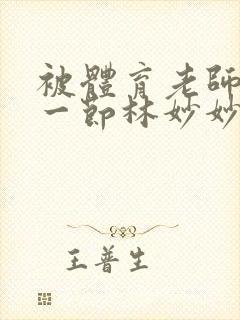 被體育老師
一節林妙妙
王普生